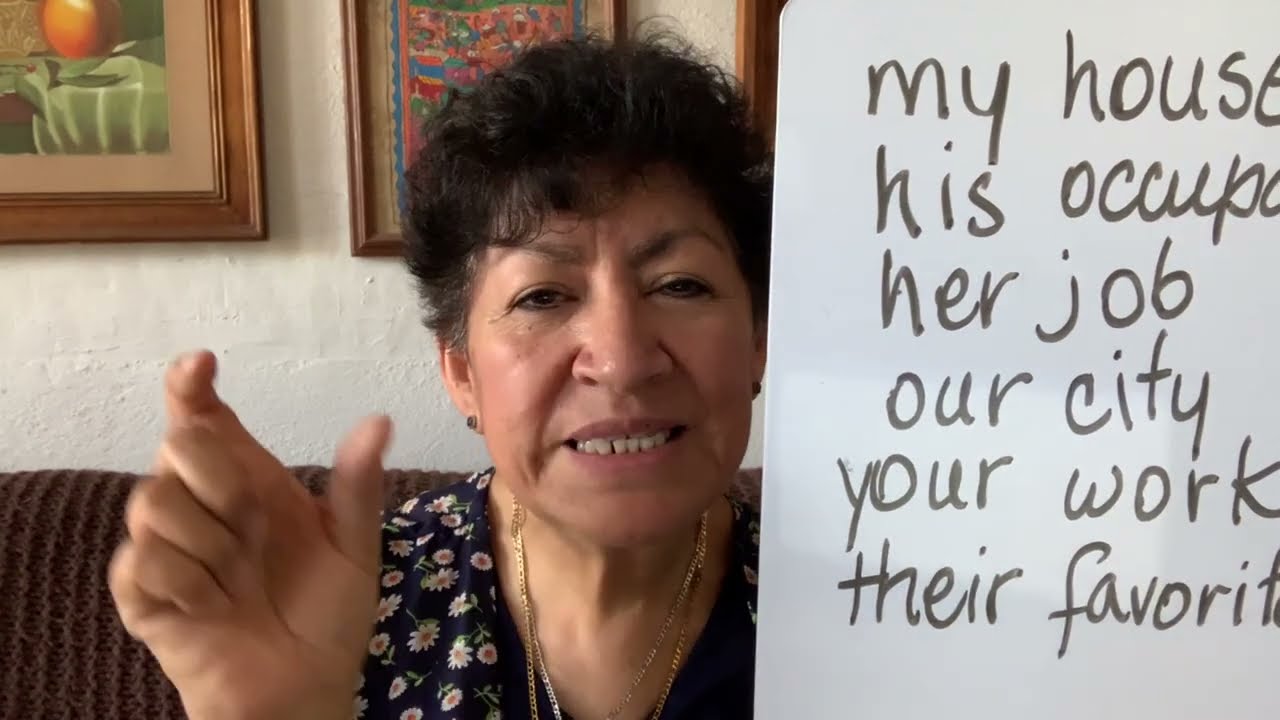 my house
his occupa
her job
our city
your work
their favorit